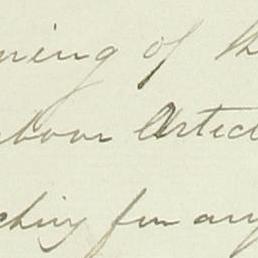 ning of th
abour Artic
ching for any